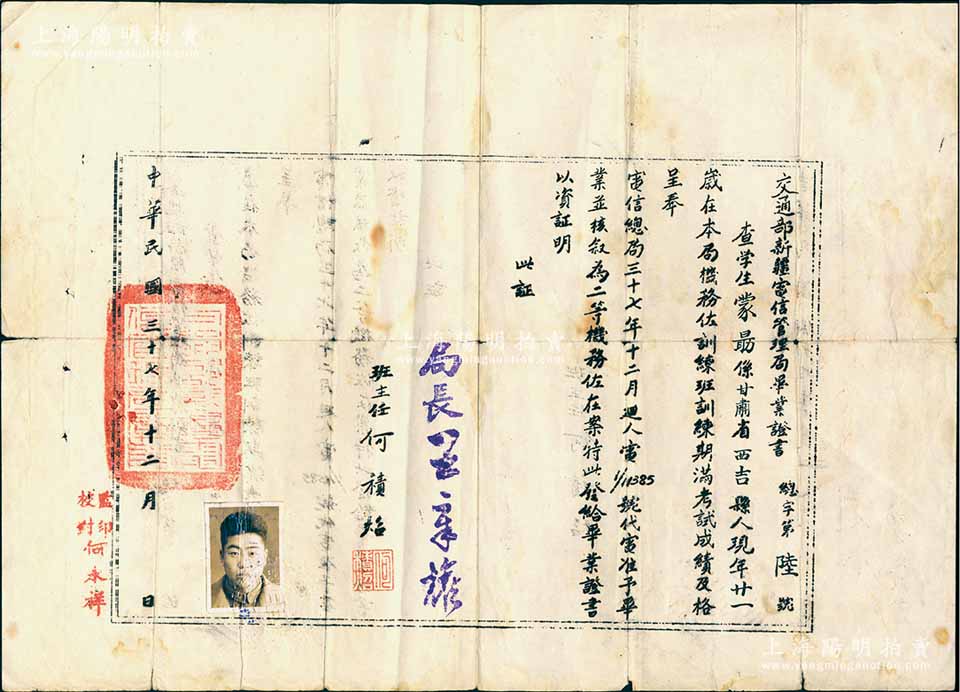 上海陽明拍賣
www.yangmingauction.com
交通部新疆電信管理局畢業證書 總字第陸號
查学生蒙勗係甘肅省西吉縣人現年廿一
歲在本局機務佐訓練班訓練期滿考試成績及格
呈奉
電信總局三十七年十二月迴人電1/11385號代電准予畢
業並核叙為二等機務佐在案特此發給畢業證書
以資証明
此証
局長
班主任何積焰
中華民國三十七年十二月 日
監印
校對何永祥
上海陽明拍賣
www.yangmingauction.com
上海陽明拍賣
www.yangmingauction.com